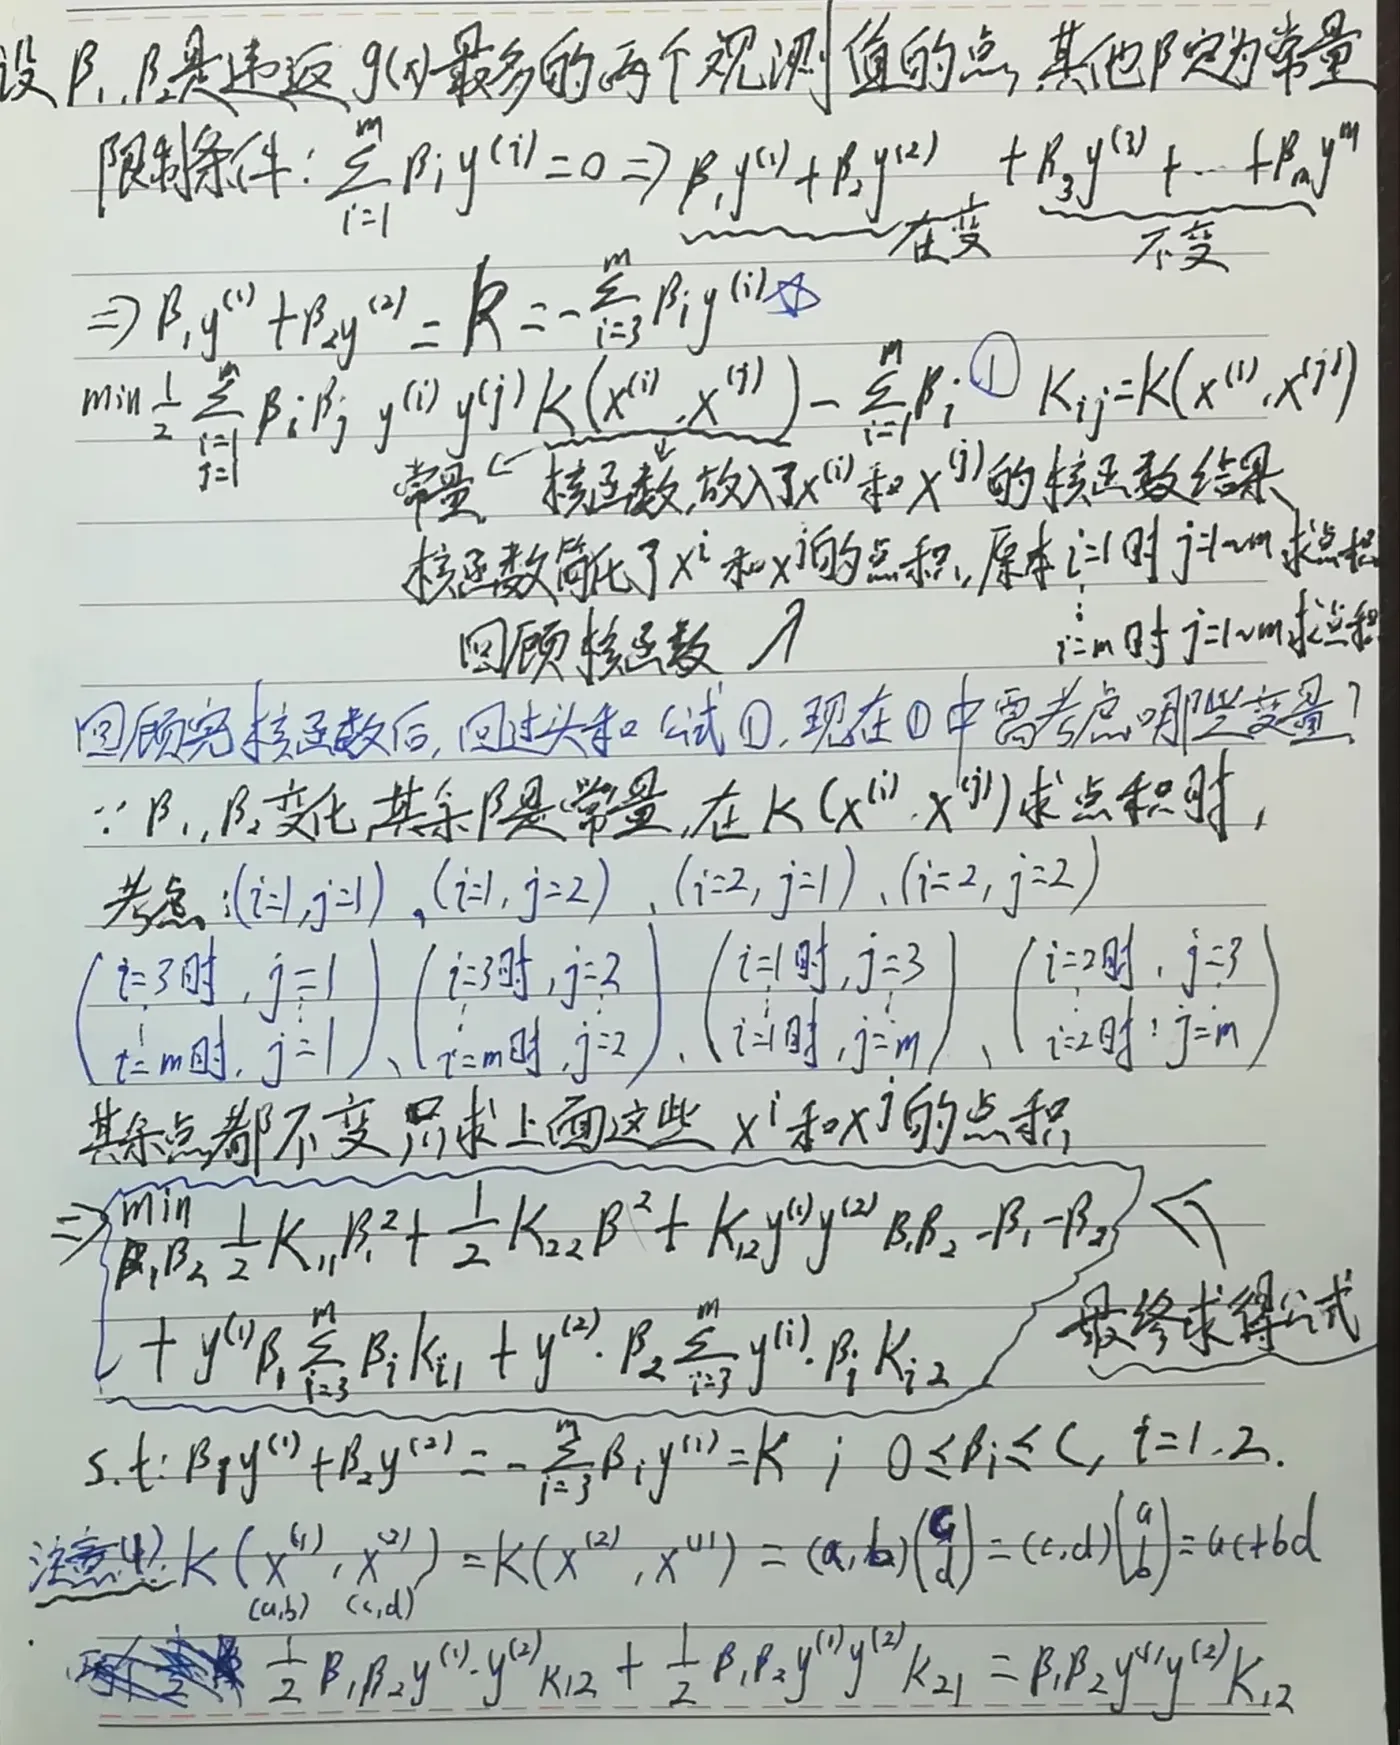 设β₁,β₂是违返g(x)最多的两个观测值的点,其他β定为常量
限制条件: ∑_{i=1}^{m} βᵢy⁽ⁱ⁾=0 ⇒ β₁y⁽¹⁾+β₂y⁽²⁾ +β₃y⁽³⁾+…+βₘyᵐ
在变 不变
⇒ β₁y⁽¹⁾+β₂y⁽²⁾ = k = -∑_{i=3}^{m} βᵢy⁽ⁱ⁾ ☆
min ½ ∑_{i=1, j=1}^{m} βᵢβⱼ y⁽ⁱ⁾y⁽ʲ⁾K(x⁽ⁱ⁾,x⁽ʲ⁾) - ∑_{i=1}^{m} βᵢ ① Kᵢⱼ=K(x⁽ⁱ⁾,x⁽ʲ⁾)
常量 ← 核函数,放入了x⁽ⁱ⁾和x⁽ʲ⁾的核函数结果
核函数简化了xⁱ和xʲ的点积,原本i=1时j=1~m求点积
⋮
回顾核函数 ↗ i=m时j=1~m求点积
回顾完核函数后,回过头和公式①,现在①中需考虑哪些变量?
∵β₁,β₂变化,其余β是常量,在K(x⁽ⁱ⁾,x⁽ʲ⁾)求点积时,
考虑:(i=1,j=1)、(i=1,j=2)、(i=2,j=1)、(i=2,j=2)
(i=3时,j=1 ⋮ i=m时,j=1)、(i=3时,j=2 ⋮ i=m时,j=2)、(i=1时,j=3 ⋮ i=1时,j=m)、(i=2时,j=3 ⋮ i=2时,j=m)
其余点都不变,只求上面这些xⁱ和xʲ的点积
⇒ min_{β₁β₂} ½K₁₁β₁²+½K₂₂β²+K₁₂y⁽¹⁾y⁽²⁾β₁β₂-β₁-β₂
+y⁽¹⁾β₁∑_{i=3}^{m} βᵢKᵢ₁+y⁽²⁾·β₂∑_{i=3}^{m} y⁽ⁱ⁾·βᵢKᵢ₂ 最终求得公式
s.t: β₁y⁽¹⁾+β₂y⁽²⁾=-∑_{i=3}^{m} βᵢy⁽ⁱ⁾=K ; 0≤βᵢ≤C, i=1,2.
注意(1): K(x⁽¹⁾,x⁽²⁾)=K(x⁽²⁾,x⁽¹⁾)=(a,b)(c d)=(c,d)(a b)=ac+bd
(a,b) (c,d)
½β₁β₂y⁽¹⁾·y⁽²⁾K₁₂+½β₁β₂y⁽¹⁾y⁽²⁾K₂₁=β₁β₂y⁽¹⁾y⁽²⁾K₁₂